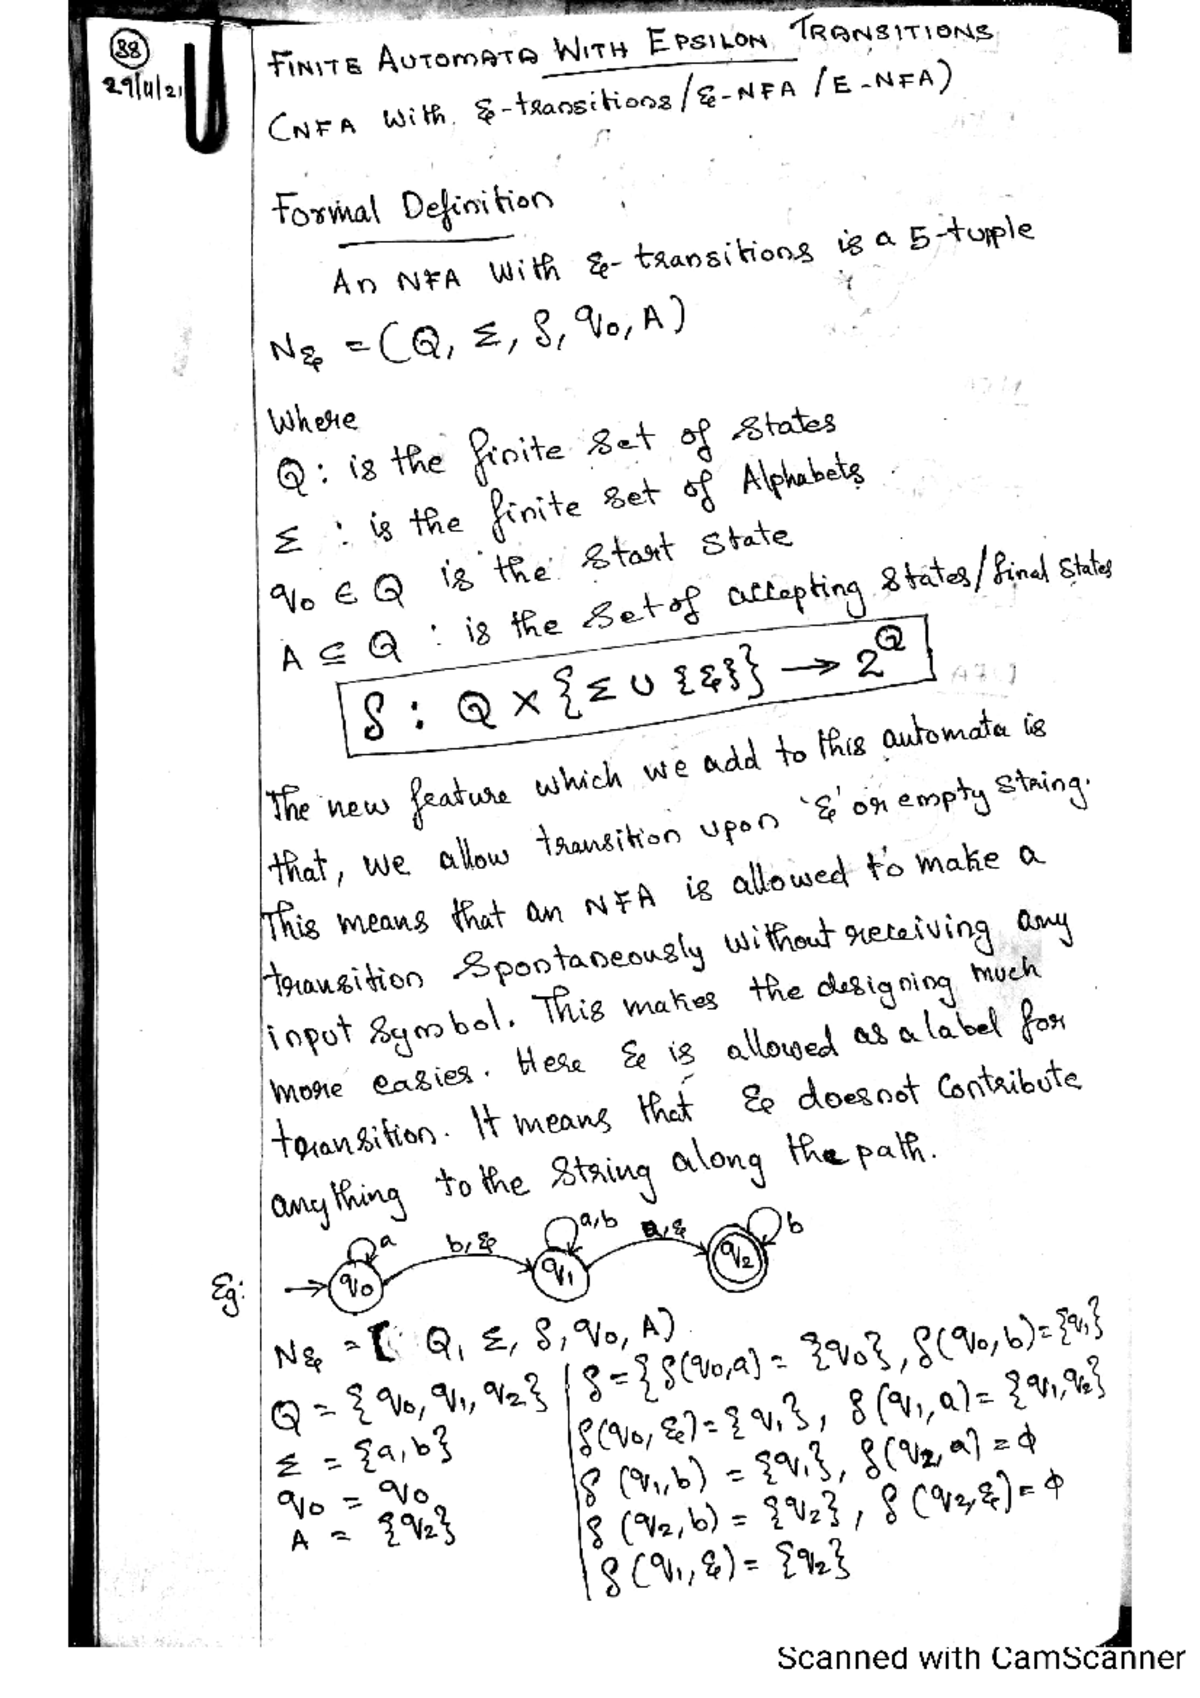 88
29/11/21
FINITE AUTOMATA WITH EPSILON TRANSITIONS
(NFA With ε-transitions/ε-NFA/E-NFA)
Formal Definition
An NFA With ε-transitions is a 5-tupple
Nε = (Q, Σ, δ, q0, A)
Where
Q : is the finite set of states
Σ : is the finite set of Alphabets
q0 ∈ Q is the start state
A ⊆ Q : is the set of accepting states/final states
δ : Q × {Σ ∪ {ε}} → 2^Q
The new feature which we add to this automata is
that, we allow transition upon 'ε' or empty string.
This means that an NFA is allowed to make a
transition spontaneously without receiving any
input symbol. This makes the designing much
more easies. Here ε is allowed as a label for
transition. It means that ε doesnot contribute
anything to the string along the path.
Eg:
a b, ε a,b a, ε b
q0 q1 q2
Nε = ( Q, Σ, δ, q0, A)
Q = {q0, q1, q2}
Σ = {a, b}
q0 = q0
A = {q2}
δ = {δ(q0,a) = {q0}, δ(q0,b) = {q1}
δ(q0, ε) = {q1}, δ(q1,a) = {q1,q2}
δ(q1,b) = {q1}, δ(q2,a) = ϕ
δ(q2,b) = {q2}, δ(q2,ε) = ϕ
δ(q1,ε) = {q2}
Scanned with CamScanner